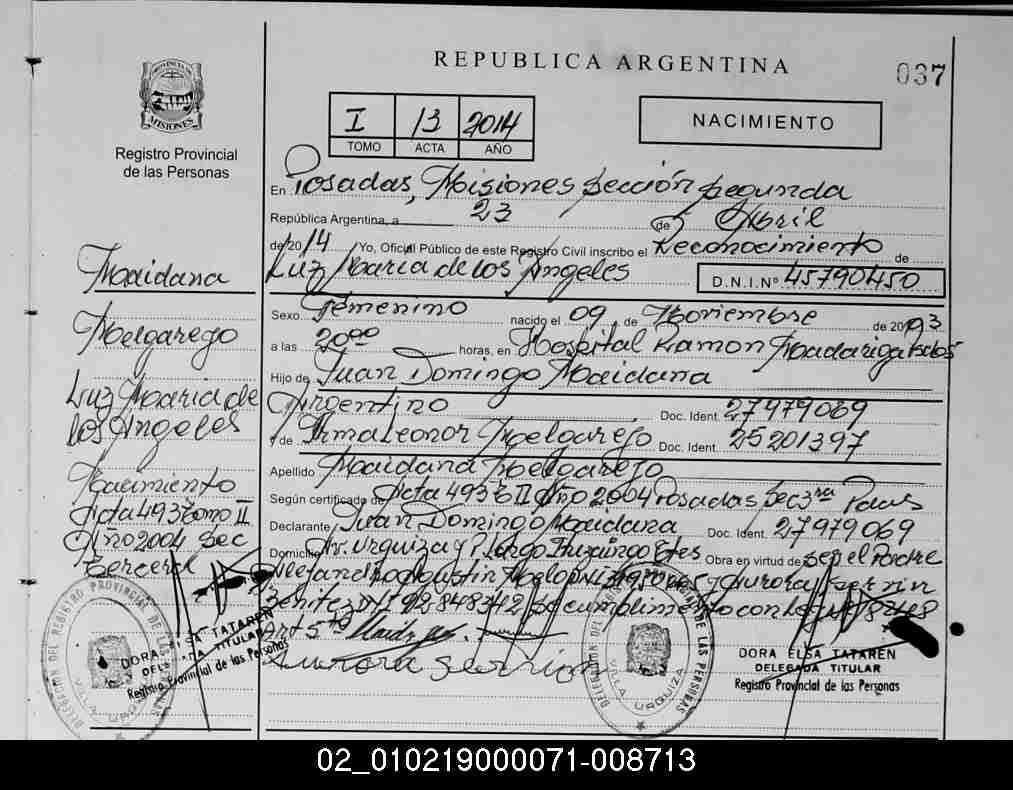 REPUBLICA ARGENTINA
037
PROVINCIA DE
MISIONES
Registro Provincial
de las Personas
I 13 2014
TOMO ACTA AÑO
NACIMIENTO
En Posadas, Misiones Sección Segunda
República Argentina, a 23 de Abril
de 2014 Yo, Oficial Público de este Registro Civil inscribo el Reconocimiento de
Luz Maria de los Angeles D.N.I. Nº 45790450
Sexo Femenino nacido el 09 de Noviembre de 20
a las 20 00 horas, en Hospital Ramon
Hijo de Juan Domingo Maidana
Argentino Doc. Ident. 27979069
y de Irma Leonor Melgarejo Doc. Ident. 25201397
Apellido Maidana Melgarejo
Según certificado de Acta 493 Tº II Año 2004 Posadas Sec 3ra
Declarante Juan Domingo Maidana Doc. Ident. 27979069
Domicilio Av. Urquiza y Obra en virtud de ser el Padre
Aurora
Benitez 92848342 cumplimiento con
Art 5
Aurora
Maidana
Melgarejo
Luz Maria de
los Angeles
Nacimiento
Acta 493 Tomo II
Año 2004 Sec
Tercera
DELEGACION DEL REGISTRO PROVINCIAL DE LAS
VILLA URQUIZA
DORA ELSA TATAREN
DELEGADA TITULAR
Registro Provincial de las Personas
DELEGACION DEL DE LAS PERSONAS
VILLA URQUIZA
DORA ELSA TATAREN
DELEGADA TITULAR
Registro Provincial de las Personas
02_010219000071-008713